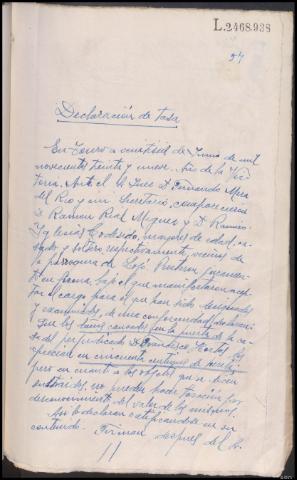 L.2468.938
57
Declaración de tasa
En Forero a veintiseis de Junio de mil
novecientos treinta y nueve. Año de la Vic-
toria. Ante el Sr. Juez D. Fernando
del Rio y mi Secretario, comparecieron
D. Ramon Rial Miguez y D. Ramón
Iglesias mayores de edad, ca-
sado y soltero respectivamente, vecinos de
la parroquia de Prestaron juramen-
to en forma, bajo el que manifestaron acep-
tar el cargo para el que han sido designados
y examinados, de una conformidad declaran:
Que los daños causados en la puerta de la ca-
sa del perjudicado D. Francisco los
aprecian en cincuenta centimos de peseta,
pero en cuanto a los objetos que se dicen
no pueden hacer tasación por
desconocimiento del valor de los mismos.
Así lo declaran ratificandose en su
contenido. Firman despues del Sr.